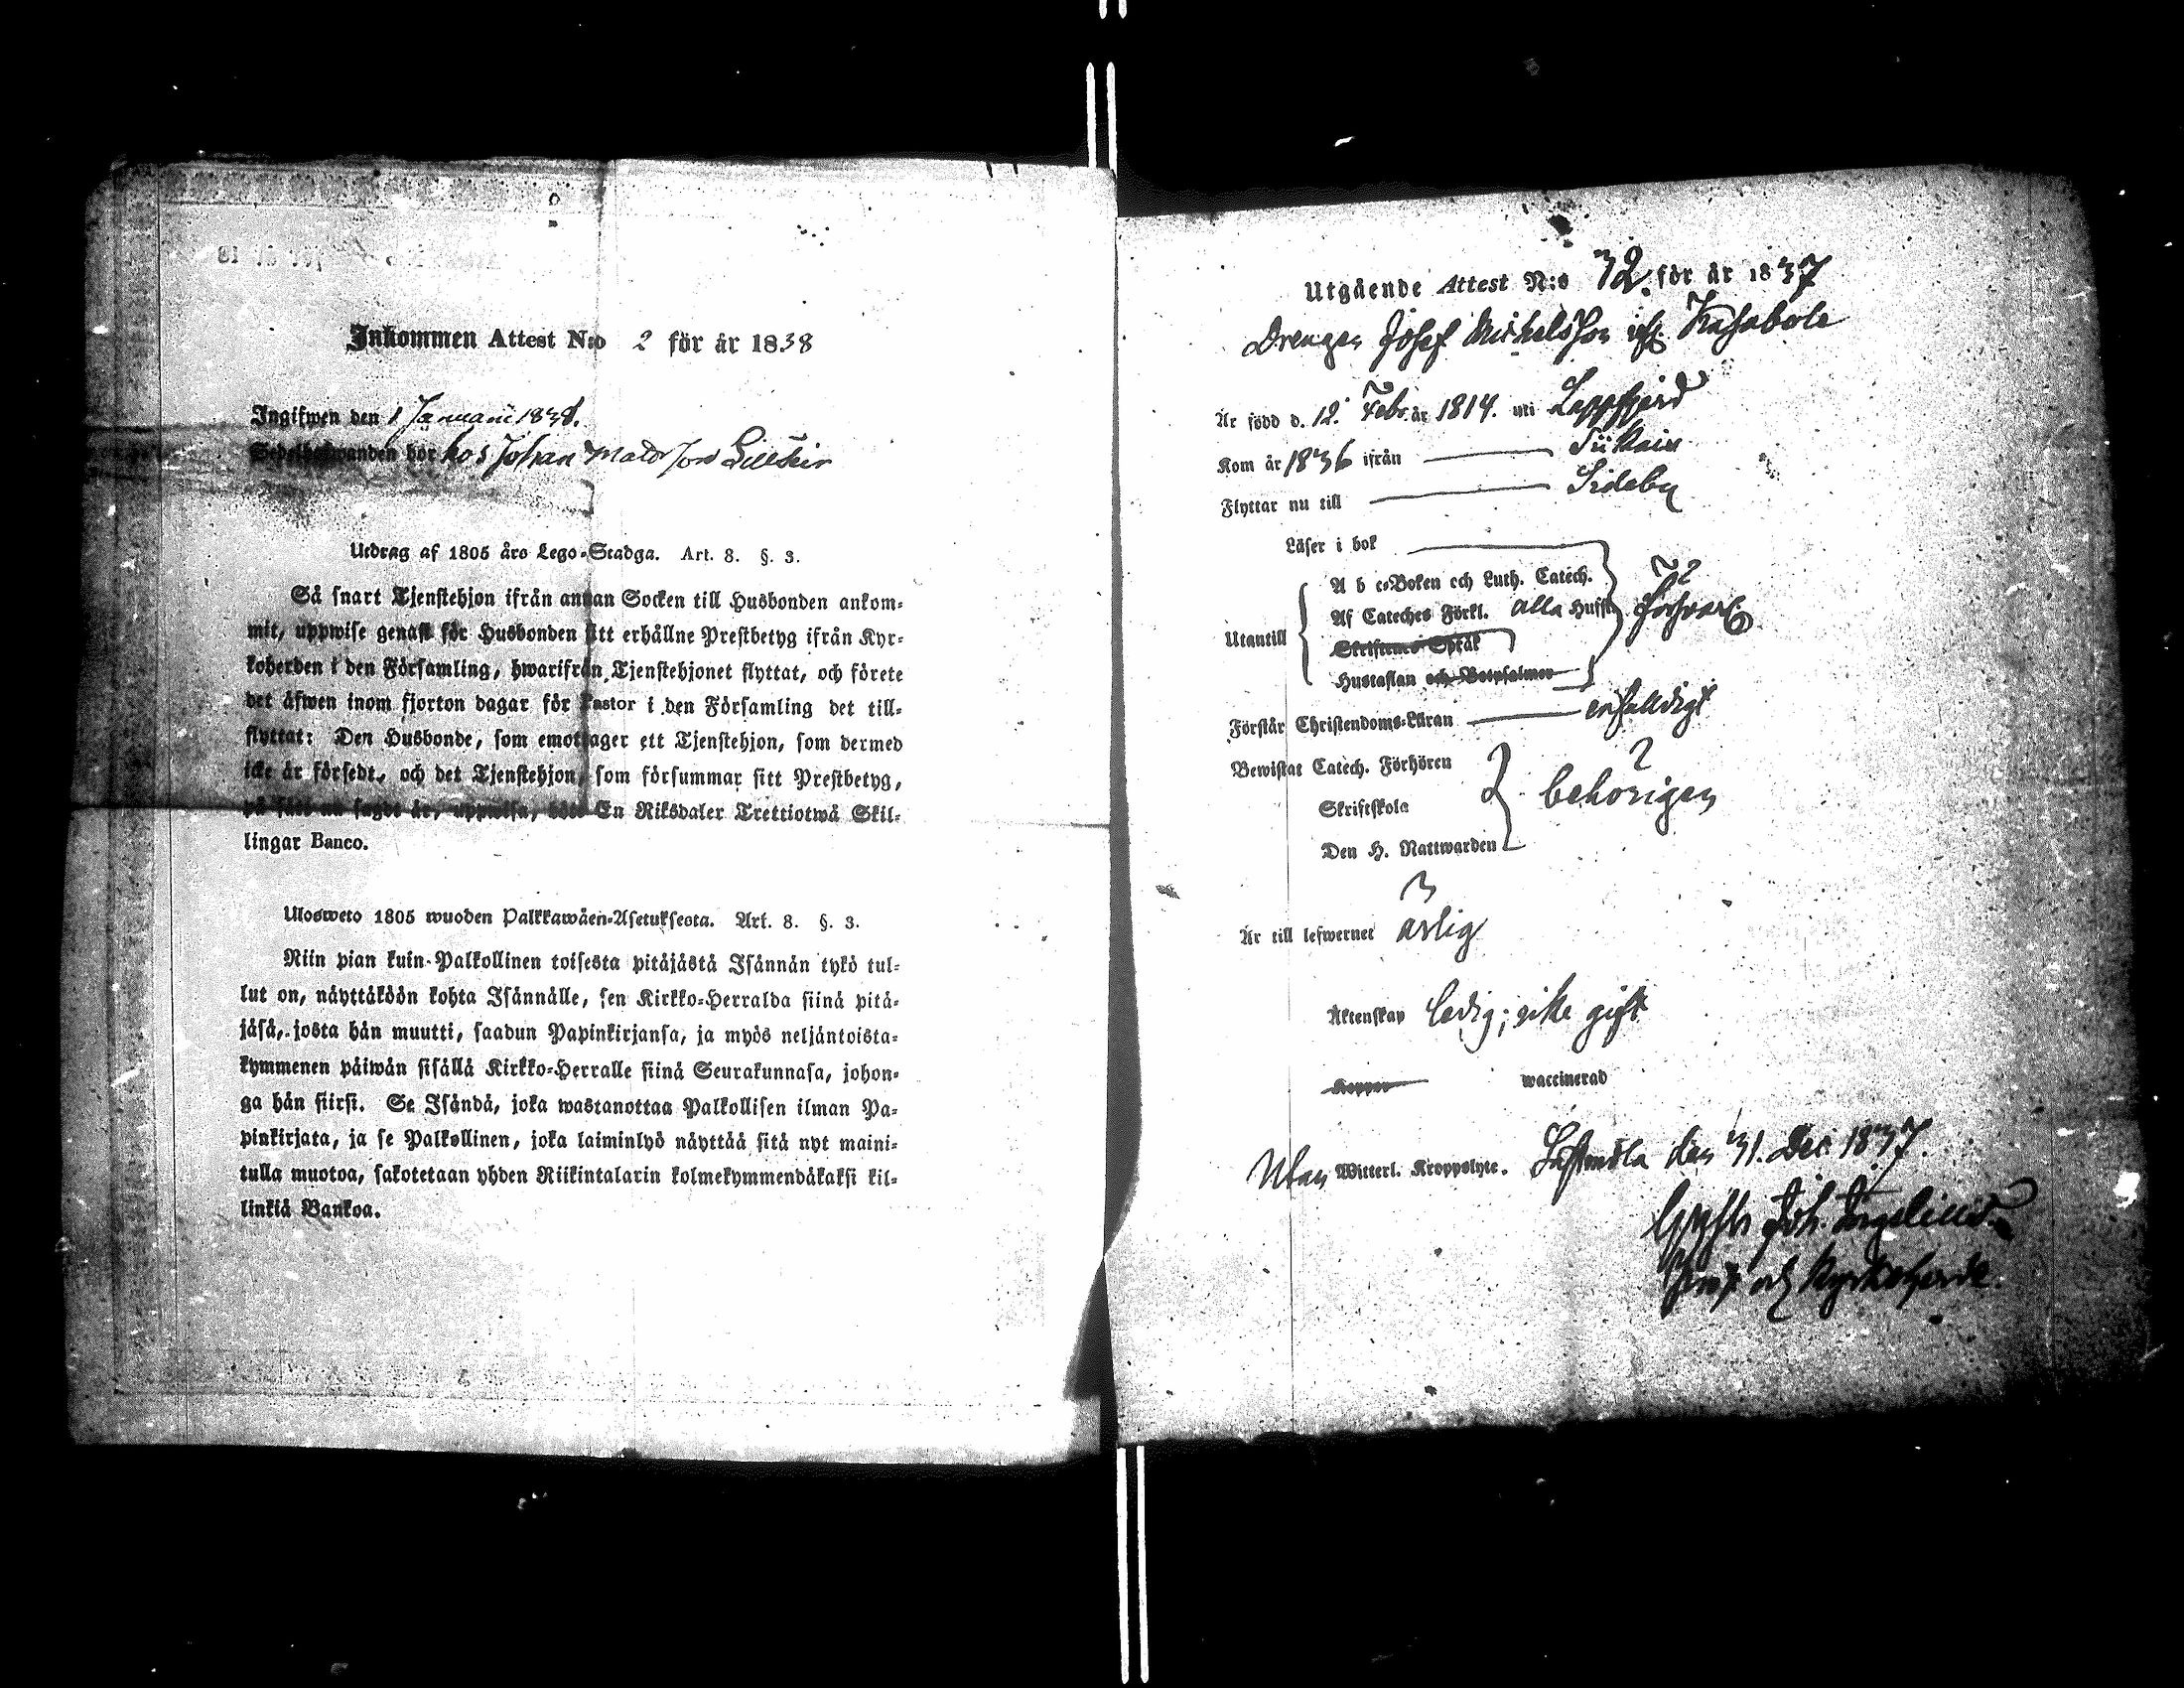 Inkommen Attest N:o 2 för år 1838
Ingifwen den 1 Januarii 1838.
Sedelhafwanden bor hos Johan Mattsson
Utdrag af 1805 års Lego-Stadga. Art. 8. §. 3.
Så snart Tjenstehjon ifrån annan Socken till Husbonden ankom-
mit, uppwise genast för Husbonden sitt erhållne Prestbetyg ifrån Kyr-
koherden i den Församling, hwarifrån Tjenstehjonet flyttat, och förete
det äfwen inom fjorton dagar för Pastor i den Församling det till-
flyttat: Den Husbonde, som emottager ett Tjenstehjon, som dermed
icke är försedt, och det Tjenstehjon, som försummar sitt Prestbetyg,
på sätt nu sagdt är, uppwisa, böte En Riksdaler Trettiotwå Skil-
lingar Banco.
Ulosweto 1805 wuoden Palkkawäen-Asetuksesta. Art. 8. §. 3.
Niin pian kuin Palkollinen toisesta pitäjästä Isännän tykö tul-
lut on, näyttäköön kohta Isännälle, sen Kirkko-Herralda siinä pitä-
jäsä, josta hän muutti, saadun Papinkirjansa, ja myös neljäntoista-
kymmenen päiwän sisällä Kirkko-Herralle siinä Seurakunnasa, johon-
ga hän siirsi. Se Isändä, joka wastanottaa Palkollisen ilman Pa-
pinkirjata, ja se Palkollinen, joka laiminlyö näyttää sitä nyt maini-
tulla muotoa, sakotetaan yhden Riikintalarin kolmekymmendäkaksi kil-
linkiä Bankoa.
Utgående Attest N:o 32. för år 1837
Drengen Josef Michelsson ifr. Kasabole
Är född d. 12. Febr. år 1814. uti Lappfjerd
Kom år 1836 ifrån Siikais
Flyttar nu till Sideby
Läser i bok
A b c-Boken och Luth. Catech.
Utantill Af Cateches Förkl. alla Hufst. försvarl.
Skriftenes Språk
Hustaflan och Botpsalmer
Förstår Christendoms-Läran enfalldigt
Bewistat Catech. Förhören
Skriftskola behörigen
Den H. Nattwarden
Är till lefwernet ärlig
Äktenskap ledig; icke gift
Koppor waccinerad
Utan Witterl. Kroppslyte. Sastmola den 31. Dec. 1837.
Joh.
och Kyrkoherde.